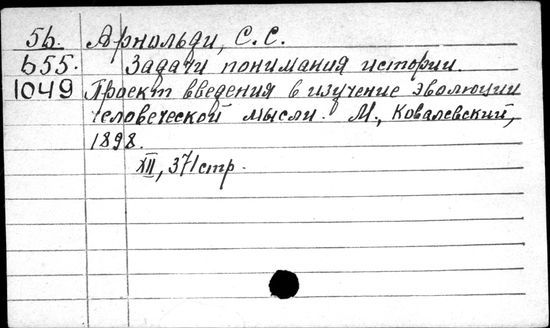 5b. Арнольди, С.С.
b55. Задачи понимания истории.
1049 Проект введения в изучение эволюции
человеческой мысли. М., Ковалевский,
1898.
XII, 371 стр.